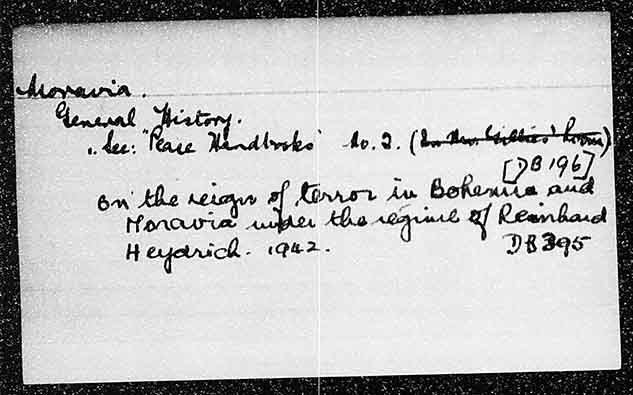 Moravia.
General History.
See: "Peace Handbooks" No. 2. (In Mr. Gillies' Room)
[DB 196]
On the reign of terror in Bohemia and
Moravia under the regime of Reinhard
Heydrich. 1942. DB 395